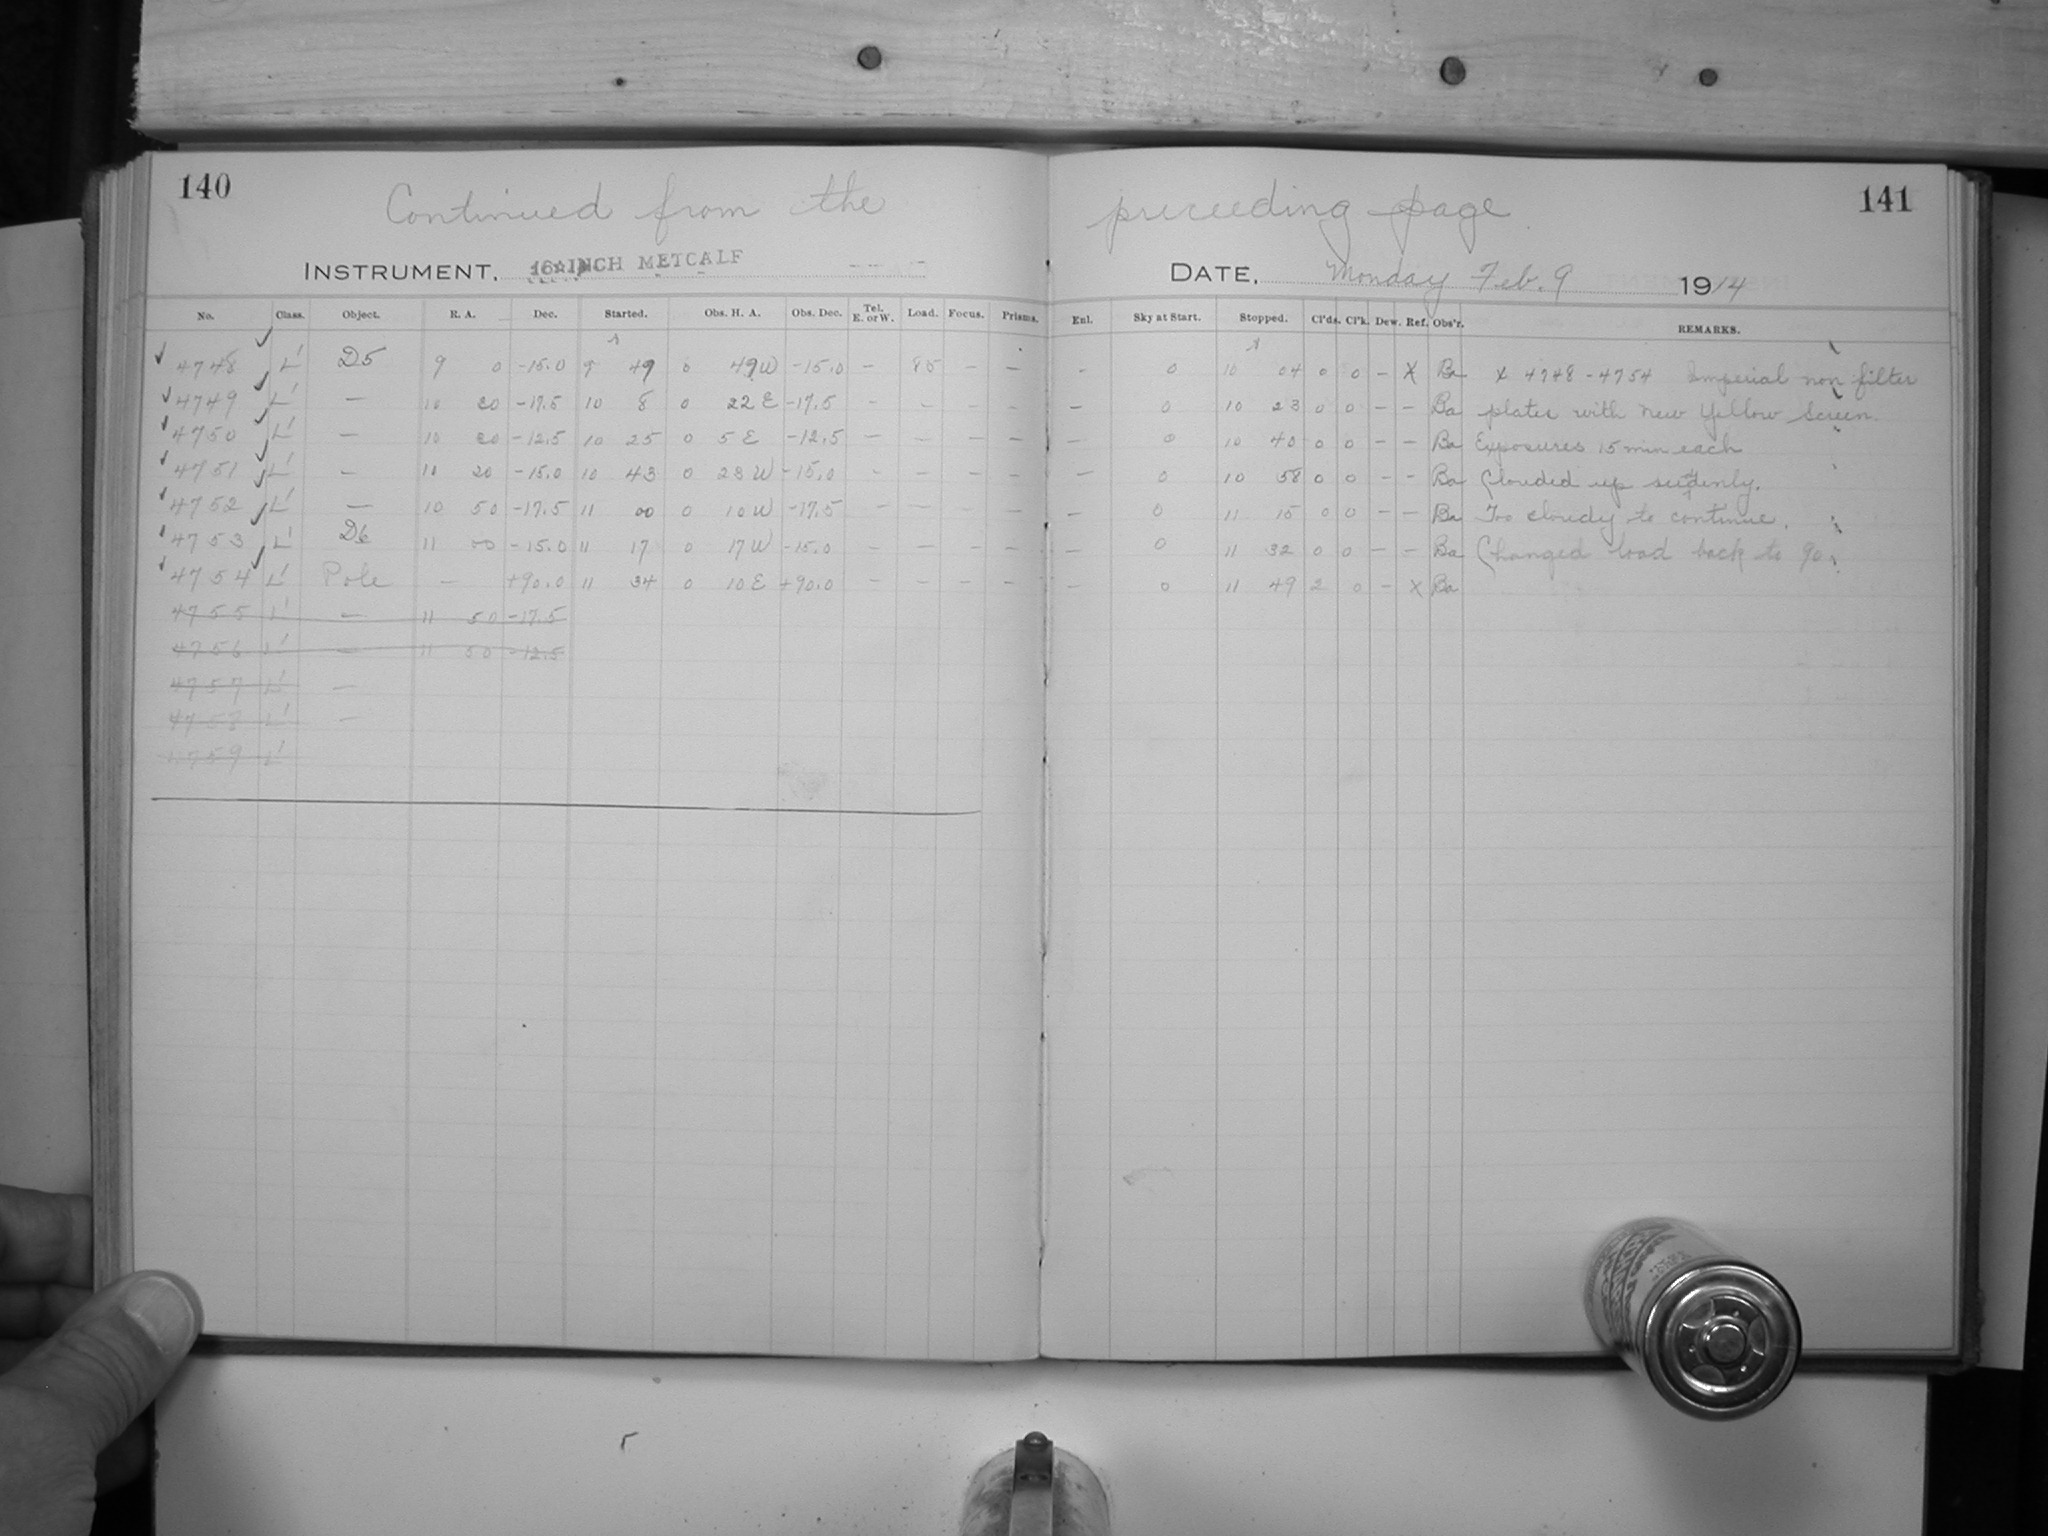 140
141
Continued from the preceeding page
INSTRUMENT, 16 INCH METCALF
DATE, Monday Feb. 9 1914
No. Class. Object. R. A. Dec. Started. Obs. H. A. Obs. Dec. Tel. E. or W. Load. Focus. Prisms. Enl. Sky at Start. Stopped. Cl'ds. Cl'k. Dew. Ref. Obs'r. REMARKS.
4748 L' D5 9 0 -15.0 9 49 0 49 W -15.0 — 85 — — - 0 10 04 0 0 - X Ba x 4748 - 4754 Imperial non filter
4749 L' — 10 20 -17.5 10 8 0 22 E -17.5 — — — — — 0 10 23 0 0 - - Ba plates with new yellow screen.
4750 L' — 10 20 -12.5 10 25 0 5 E -12.5 — — — — — 0 10 40 0 0 - - Ba Exposures 15 min each
4751 L' — 10 20 -15.0 10 43 0 23 W -15.0 — — — — — 0 10 58 0 0 - - Ba Clouded up suddenly.
4752 L' — 10 50 -17.5 11 00 0 10 W -17.5 — — — — — 0 11 15 0 0 - - Ba Too cloudy to continue.
4753 L' D6 11 00 -15.0 11 17 0 17 W -15.0 — — — — — 0 11 32 0 0 - - Ba Changed load back to 90.
4754 L' Pole — +90.0 11 34 0 10 E +90.0 — — — — — 0 11 49 2 0 - X Ba
4755 L' — 11 50 -17.5
4756 L' — 11 50 -12.5
4757 L' —
4758 L' —
4759 L'